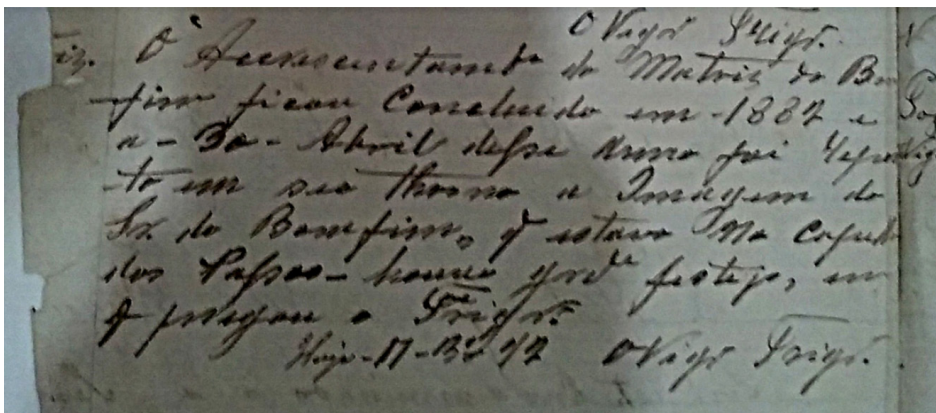 O Vigr Frigr.
O Accrescentamto da Matriz do Bom
fim ficou Concluido em 1882 e
a - 30 - Abril desse anno foi
to em seo throno a Imagem do
Sr. do Bomfim, q estava na Capela
dos Passos - houve grde festejo, em
q pregou o Frigr.
Hoje - 17 - O Vigr Frigr.